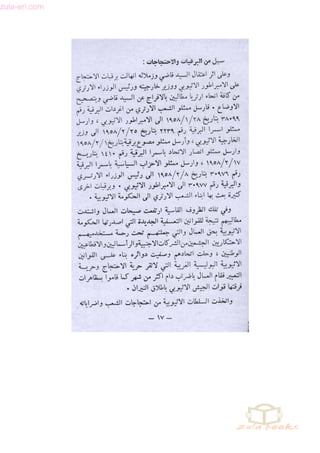 zula-eri.com
سيل من البرقيات والاحتجاجات :
وعلى اثر اعتقال السيد قاضي وزملائه انهالت برقيات الاحتجاج
على الامبراطور الاثيوبي ووزير خارجيته ورئيس الوزراء الارتري
من كافة انحاء ارتريا مطالبين بالافراج عن السيد قاضي وبتصحيح
الاوضاع ٠ فارسل ممثلو الشعب الارتري من اغردات البرقية رقم
٣٨٠٩٩ بتاريخ ١٩٥٨/١/٢٨ الى الامبراطور الاثيوبي ، وارسل
ممثلو اسمرا البرقية رقم ٢٢٣٩ بتاريخ ١٩٥٨/٢/٢٥ الى وزير
الخارجية الاثيوبي ، وأرسل ممثلو مصوع برقية بتاريخ ١٩٥٨/٢/١
وارسل ممثلو انصار الاتحاد باسمرا البرقية رقم ١٤١٠ بتاريخ
١٩٥٨/٢/١٧ ، وارسل ممثلو الاحزاب السياسية باسمرا البرقية
رقم ٣٠٩٧٦ بتاريخ ١٩٥٨/٢/٨ الى رئيس الوزراء الارتري
والبرقية رقم ٣٠٩٧٧ الى الامبراطور الاثيوبي ٠ وبرقيات اخرى
كثيرة بعث بها ابناء الشعب الارتري الى الحكومة الاثيوبية ٠
وفي تلك الظروف القاسية ارتفعت صيحات العمال واشتدت
مطالبهم نتيجة للقوانين التعسفية الجديدة التي اصدرتها الحكومة
الاثيوبية بحق العمال والتي جعلتهم تحت رحمة مستخدميهم
الاحتكاريين الجشعين من الشركات الاجنبية والرأسماليين والاقطاعيين
الوطنيين ، وحلت اتحادهم وصفيت دوائره بناء على القوانين
الاثيوبية البوليسية الغريبة التي لاتقر حرية الاحتجاج وحرية
التعبير فقام العمال باضراب دام اكثر من شهر كما قاموا بمظاهرات
فرقتها قوات الجيش الاثيوبي باطلاق النيران ٠
واتخذت السلطات الاثيوبية من احتجاجات الشعب واضراباته
— ١٧ —
zula books